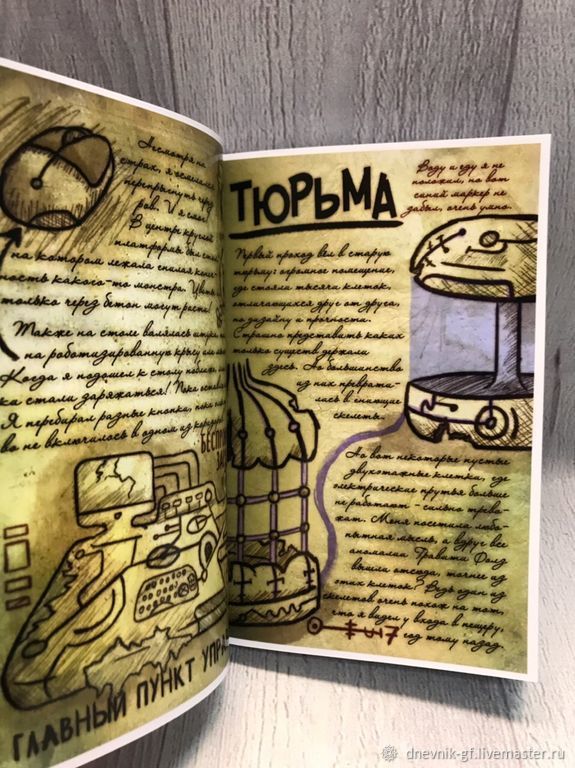 Несмотря на
страх, я
перепрыгнуть через
ров. И я смог!
В центре круглой
платформы был стол
на котором лежала спалая
ность какого-то монстра. Цветы
только через бетон могут расти!
Также на столе валялись
на роботизированную крысу
Когда я подошел к столу
ка стали заряжаться! Пока
Я перебирал разные кнопки, пока
во не включилось в одном из коридоров
ГЛАВНЫЙ ПУНКТ УПРАВ
ТЮРЬМА
Воду и еду я не
положил, но вот
синий маркер не
забыл, очень умно.
Первый проход вёл в старую
тюрьму: огромное помещение,
где стояли тысячи клеток,
отличающихся друг от друга,
по дизайну и прочности.
Страшно представить каких
только существ держали
здесь. Но большинство
из них преврати-
лись в гниющие
скелеты.
Но вот некоторые пустые
двухэтажные клетки, где
электрические прутья больше
не работают - сильно трево-
жат. Меня посетила любо-
пытная мысль, а вдруг все
аномалии Гравити Фолз
вышли отсюда, точнее из
этих клеток? Ведь один из
скелетов очень похож на тот,
что я видел у входа в пещеру,
год тому назад.
dnevnik-gf.livemaster.ru